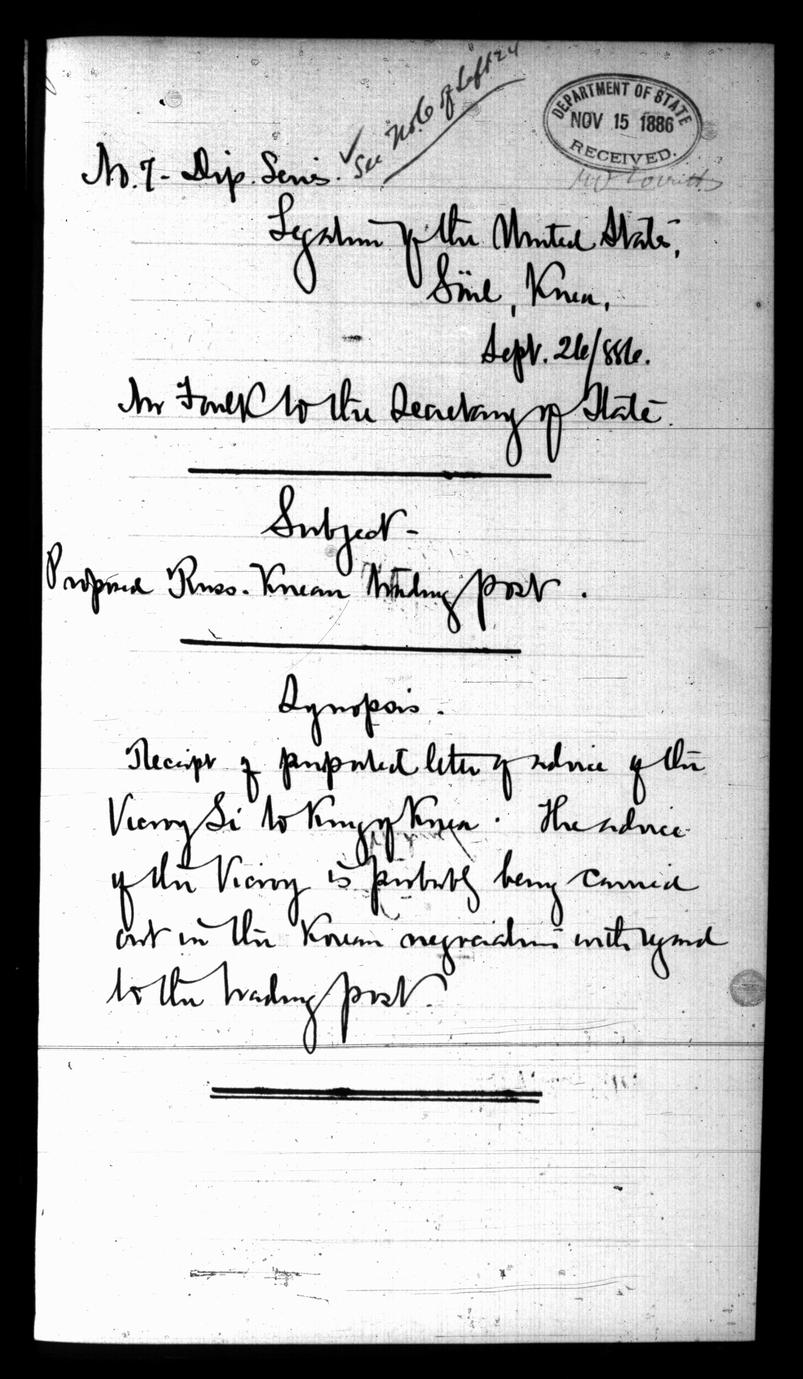 See Note of Sept 24
DEPARTMENT OF STATE
NOV 15 1886
RECEIVED.
No. 7 - Dip. Series.
Legation of the United States,
Söul, Korea,
Sept. 26/886.
Mr Foulk to the Secretary of State.
Subject -
Proposed Russ. Korean Trading post.
Synopsis.
Receipt of purported letter of advice of the
Viceroy Li to King of Korea. The advice
of the Viceroy is probably being carried
out in the Korean negociations with regard
to the trading post.